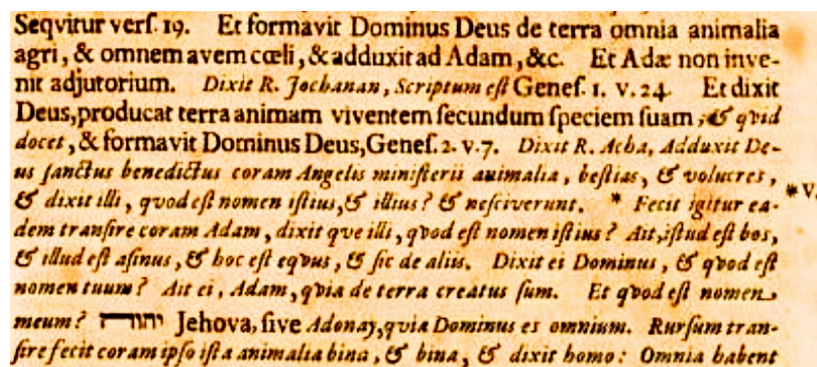 Seqvitur verſ. 19. Et formavit Dominus Deus de terra omnia animalia
agri, & omnem avem cœli, & adduxit ad Adam, &c. Et Adæ non inve-
nit adjutorium. Dixit R. Jochanan, Scriptum eſt Geneſ. 1. v. 24. Et dixit
Deus, producat terra animam viventem ſecundum ſpeciem ſuam, & qvid
docet, & formavit Dominus Deus, Geneſ. 2. v. 7. Dixit R. Acha, Adduxit De-
us ſanctus benedictus coram Angelis miniſterii animalia, beſtias, & volucres,
& dixit illi, qvod eſt nomen iſtius, & illius? & neſciverunt. * Fecit igitur ea- * V.
dem tranſire coram Adam, dixit qve illi, qvod eſt nomen iſtius? Ait, iſtud eſt bos,
& illud eſt aſinus, & hoc eſt eqvus, & ſic de aliis. Dixit ei Dominus, & qvod eſt
nomen tuum? Ait ei, Adam, qvia de terra creatus ſum. Et qvod eſt nomen
meum? יהוה Jehova, ſive Adonay, qvia Dominus es omnium. Rurſum tran-
ſire fecit coram ipſo iſta animalia bina, & bina, & dixit homo: Omnia habent